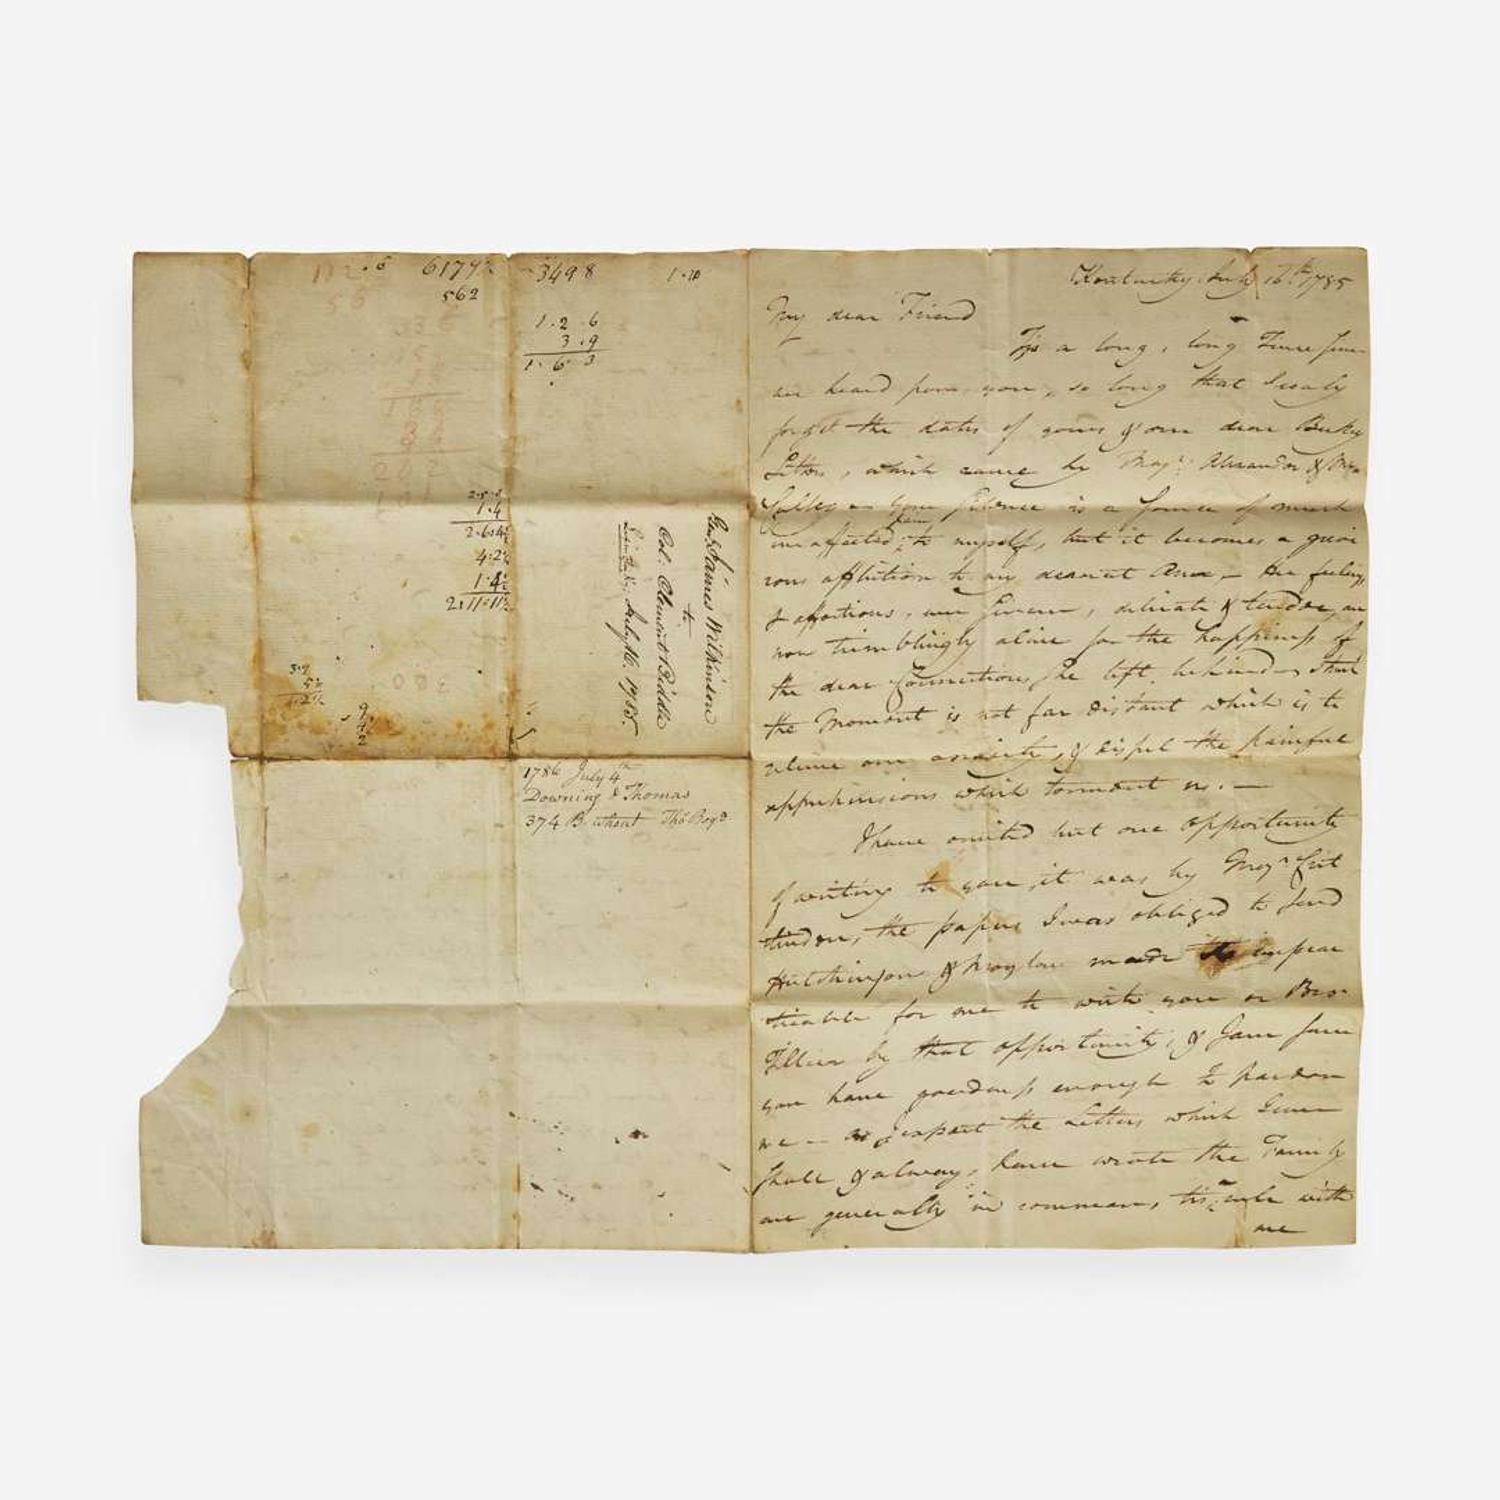 6179½
562
3498
1.10
1.2.6
3.9
1.6.3
1.4
2.6.4½
4.2½
1.4½
2.11.11½
Genl. James Wilkinson
to
Col. Clement Biddle
July 16. 1785.
1786 July 4th
Downing & Thomas
374 B. wheat Tho Boyd
Kentucky July 16th. 1785
My dear Friend
Tis a long, long Time since
we heard from you, so long that I realy
forget the dates of yours & our dear Beckys
Letters, which came by Majr. Alexander & Mr.
your Silence is a source of much
unaffected pain to myself, but it becomes a
affliction to my dearest Ann — Her feelings
& affections, ever, delicate & tender, are
now tremblingly alive for the happiness of
the dear Connections She left behind
the Moment is not far distant which is to
relieve our anxiety, & dispel the painful
apprehensions which torment us. —
I have omited but one opportunity
of writing to you, it was by Majr. Crit
tinden, the papers I was obliged to send
Hutchinson & made
for me to write you or
by that opportunity, & I am sure
you have goodness enough to pardon
me — the Letters which I ever
shall & always have wrote the Family
are generally in common, tis rule with
me